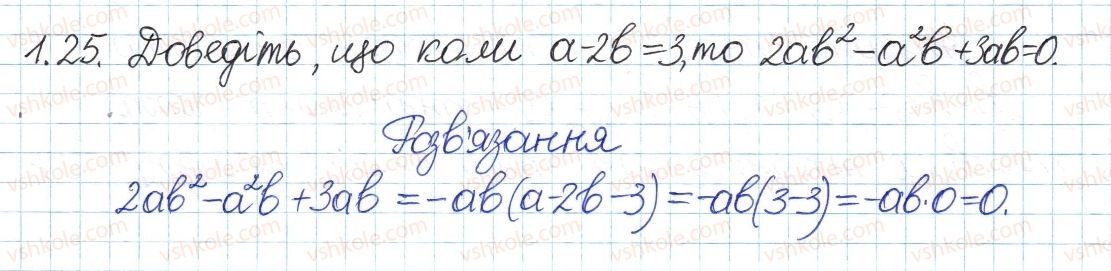 1.25. Доведіть, що коли a-2b=3, то 2ab²-a²b+3ab=0.
Розв'язання
2ab²-a²b+3ab=-ab(a-2b-3)=-ab(3-3)=-ab·0=0.